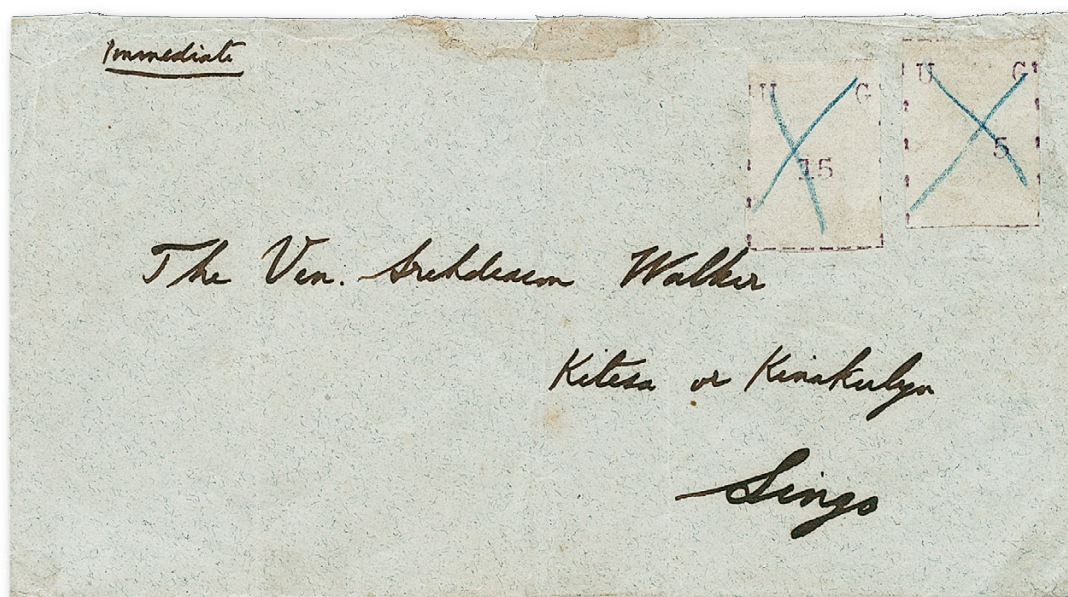 Immediate
U G
15
U G
5
The Ven. Archdeacon Walker
Kitesa or Kinakulya
Singo